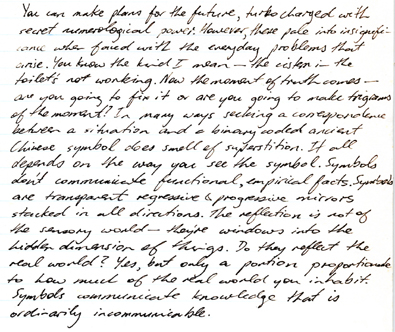 You can make plans for the future, turbo charged with
secret numerological power. However, these pale into insignifi-
cance when faced with the everyday problems that
arise. You know the kind I mean – the cistern in the
toilet's not working. Now the moment of truth comes –
are you going to fix it or are you going to make trigrams
of the moment? In many ways seeking a correspondence
between a situation and a binary coded ancient
Chinese symbol does smell of superstition. It all
depends on the way you see the symbol. Symbols
don't communicate functional, empirical facts. Symbols
are transparent regressive & progressive mirrors
stacked in all directions. The reflection is not of
the sensory world – they're windows into the
hidden dimension of things. Do they reflect the
real world? Yes, but only a portion proportionate
to how much of the real world you inhabit.
Symbols communicate knowledge that is
ordinarily incommunicable.